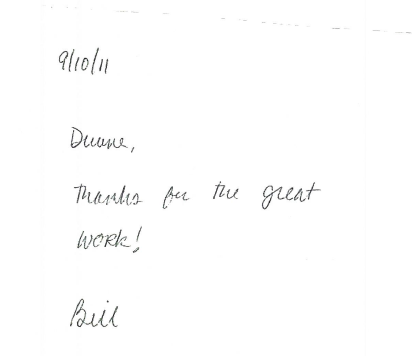 9/10/11
Duane,
Thanks for the great
work!
Bill